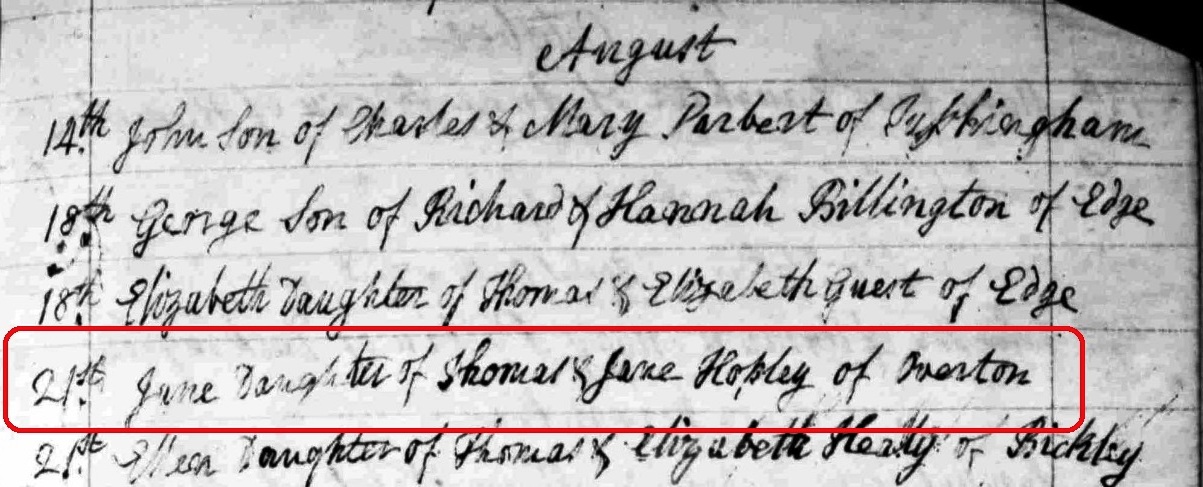 August
14.th John Son of Charles & Mary Parbert of Tushingham
18.th George Son of Richard & Hannah Billington of Edge
18.th Elizabeth Daughter of Thomas & Elizabeth Guest of Edge
21.st Jane Daughter of Thomas & Jane Hopley of Overton
21.st Ellen Daughter of Thomas & Elizabeth of Bickley